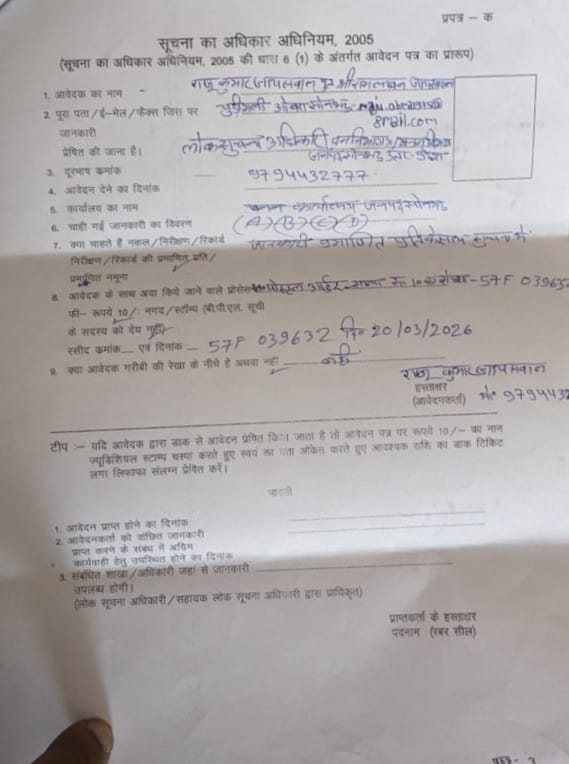 प्रपत्र – क
सूचना का अधिकार अधिनियम, 2005
(सूचना का अधिकार अधिनियम, 2005 की धारा 6 (1) के अंतर्गत आवेदन पत्र का प्रारूप)
1. आवेदक का नाम - राजू कुमार जायसवाल पुत्र श्री
2. पूरा पता/ई-मेल/फैक्स जिस पर
gmail.com
जानकारी
प्रेषित की जाना है। लोक सूचना अधिकारी
3. दूरभाष कमांक
4. आवेदन देने का दिनांक - 9794432777
5. कार्यालय का नाम कार्यालय
6. चाही गई जानकारी का विवरण (A) (B) (C) (D)
7. क्या चाहते है नकल/निरीक्षण/रिकार्ड जानकारी प्रमाणित
निरीक्षण/रिकार्ड की प्रमाणित प्रति/
प्रमाणित नमूना
8. आवेदक के साथ अदा किये जाने वाले प्रोसेस पोस्टल आर्डर 57F 039632
फी– रूपये 10/: नगद/स्टॉम्प (बी.पी.एल. सूची
के सदस्य को देय नहीं)
रसीद कमांक एवं दिनांक – 57F 039632 दि० 20/03/2026
9. क्या आवेदक गरीबी की रेखा के नीचे है अथवा नहीं नहीं
राजू कुमार जायसवाल
हस्ताक्षर
(आवेदनकर्ता) मो० 9794432
टीप :– यदि आवेदक द्वारा डाक से आवेदन प्रेषित किया जाता है तो आवेदन पत्र पर रूपये 10/– का नान
ज्यूडिशियल स्टाम्प चस्पा करते हुए स्वयं का पता अंकित करते हुए आवश्यक राशि का डाक टिकिट
लगा लिफाफा संलग्न प्रेषित करें।
पावती
1. आवेदन प्राप्त होने का दिनांक
2. आवेदनकर्ता को वांछित जानकारी
प्राप्त करने के संबंध में अग्रिम
कार्यवाही हेतु उपस्थित होने का दिनांक
3. संबंधित शाखा/अधिकारी जहां से जानकारी
उपलब्ध होगी।
(लोक सूचना अधिकारी/सहायक लोक सूचना अधिकारी द्वारा प्राधिकृत)
प्राप्तकर्ता के हस्ताक्षर
पदनाम (रबर सील)